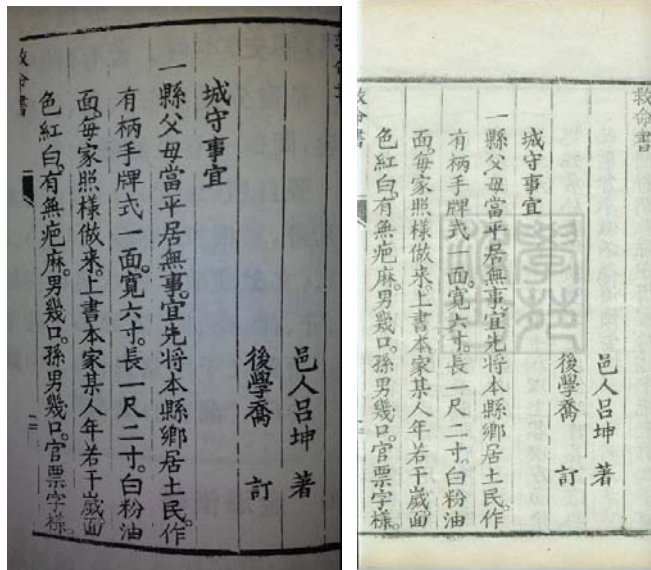 邑人呂坤 著
後學喬 訂
城守事宜
一縣父母當平居無事。宜先將本縣鄉居土民作
有柄手牌式一面。寬六寸。長一尺二寸。白粉油
面。每家照樣做来。上書本家某人年若干歲面
色紅白。有無疤麻。男幾口。孫男幾口。官票字樣。
救命書
救命書
邑人呂坤 著
後學喬 訂
城守事宜
一縣父母當平居無事。宜先將本縣鄉居土民作
有柄手牌式一面。寬六寸。長一尺二寸。白粉油
面。每家照樣做来。上書本家某人年若干歲面
色紅白。有無疤麻。男幾口。孫男幾口。官票字樣。
救命書